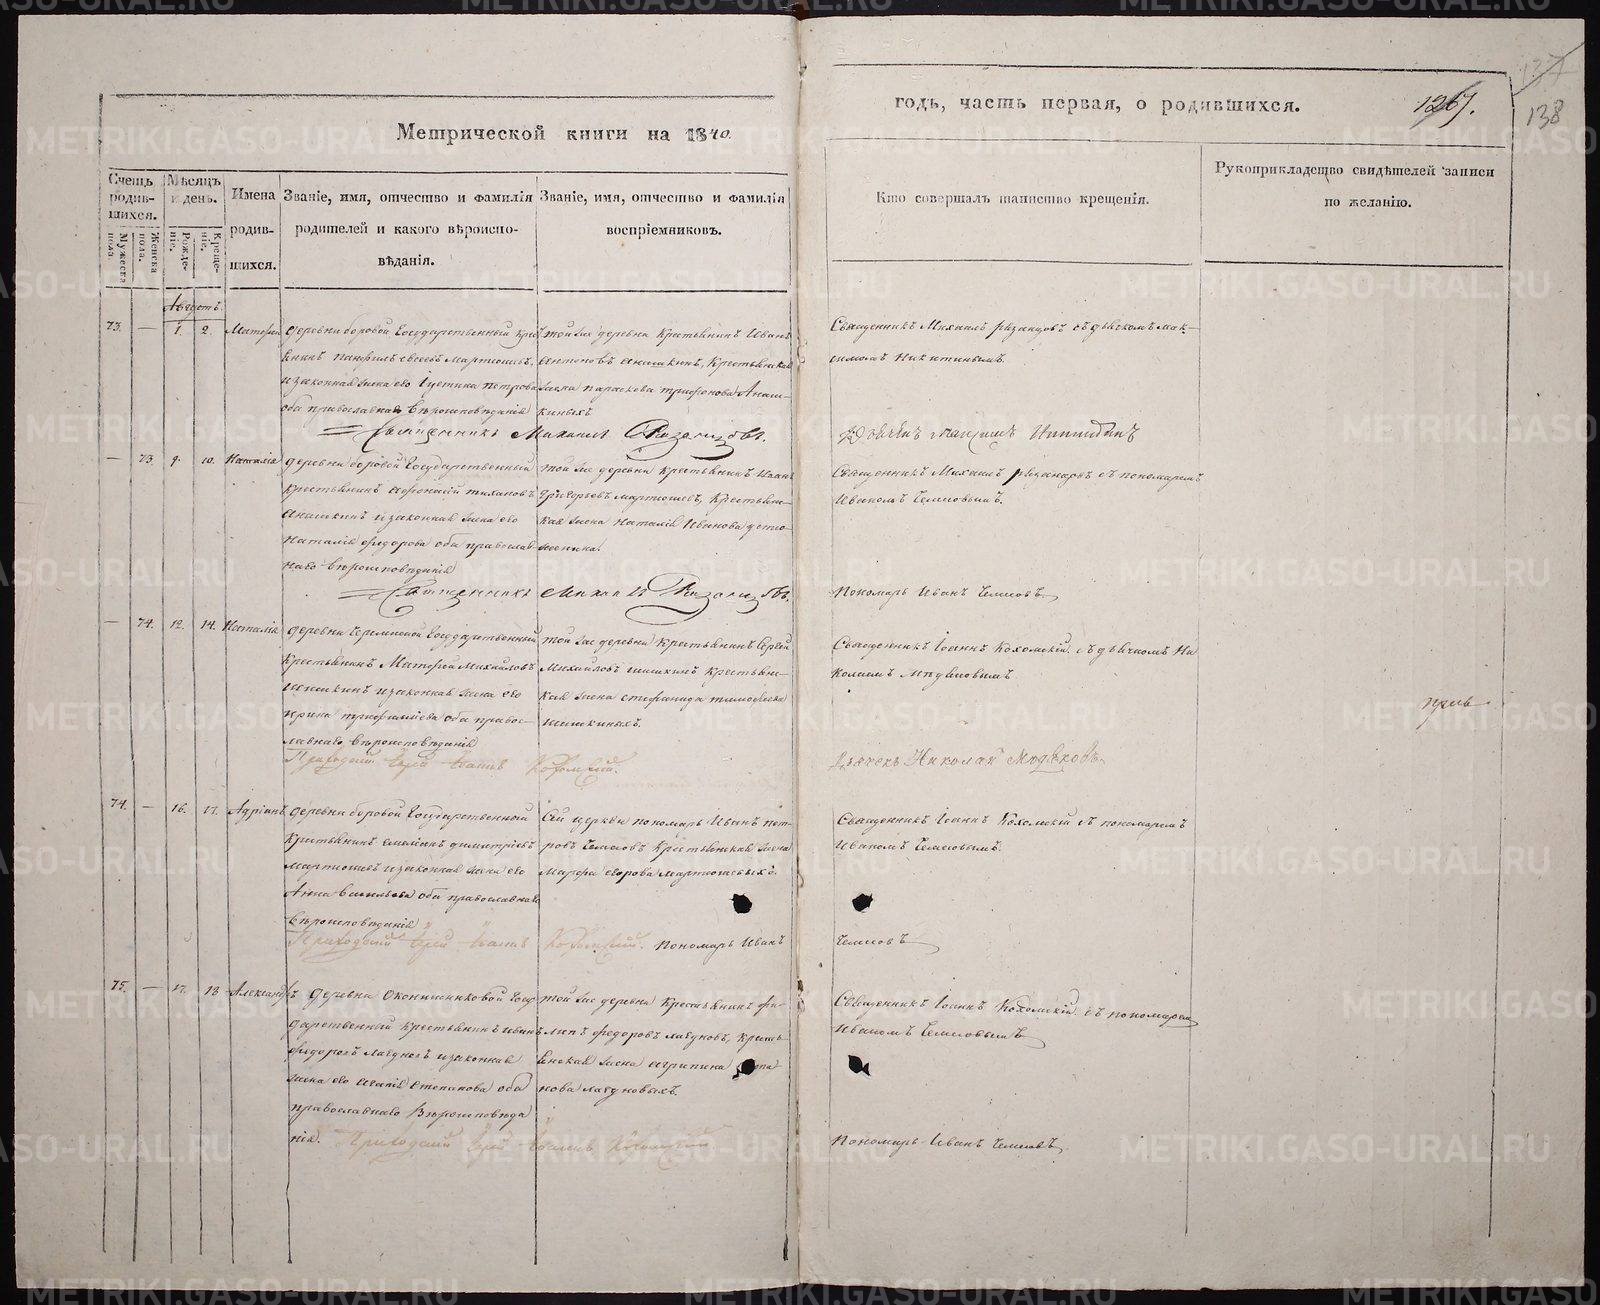 Метрической книги на 1840.
годъ, часть первая, о родившихся.
1267.
137
138
Счетъ родив-шихся.
Мужеска пола.
Женска пола.
Мѣсяцъ и день.
Рожде-ніе.
Креще-ніе.
Имена родив-шихся.
Званіе, имя, отчество и фамилія
родителей и какого вѣроиспо-
вѣданія.
Званіе, имя, отчество и фамилія
воспріемниковъ.
Кто совершалъ таинство крещенія.
Рукоприкладство свидѣтелей записи
по желанію.
Августъ.
73. — 1. 2. Матѳей
деревни боровой Государственный крес
тьянинъ Панфилъ Мартюшевъ,
и законная жена его Іустина петрова
оба православнаго вѣроисповѣданія
той же деревни Крестьянинъ Иванъ
Антоновъ Анашкинъ, Крестьянская
жена параскева трифонова Анаш-
киныхъ
Священникъ Михаилъ Рязанцовъ
Священникъ Михаилъ Рязанцовъ съ дьячкомъ Мак-
симомъ Никитинымъ.
Дьячекъ Максимъ Никитинъ
— 73. 9. 10. Наталія
деревни боровой Государственный
Крестьянинъ Афонасій тихановъ
Анашкинъ и законная жена его
Наталія Федорова оба православ-
наго вѣроисповѣданія
той же деревни крестьянинъ Иванъ
Григорьевъ мартюшевъ, Крестьянс-
кая жена Наталія Иванова
Священникъ Михаилъ Рязанцовъ
Священникъ Михаилъ Рязанцовъ съ пономаремъ
Иваномъ Чемесовымъ.
Пономарь Иванъ Чемесовъ
— 74. 12. 14. Наталія
деревни Черемисской Государственный
Крестьянинъ Матфей Михайловъ
Шишкинъ и законная жена его
Ирина трифиліева оба правос-
лавнаго вѣроисповѣданія
той же деревни Крестьянинъ Сергей
Михайловъ шишкинъ Крестьянс-
кая жена стефанида тимофеева
шишкиныхъ.
Приходскій Іерей Іоаннъ Кохомскій.
Священникъ Іоаннъ Кохомскій съ дьячкомъ Ни
колаемъ
Дьячекъ Николай
74. — 16. 17. Адріанъ
деревни боровой Государственной
Крестьянинъ емельянъ димитріевъ
мартюшевъ и законная жена его
Анна васильева оба православнаго
вѣроисповѣданія
Сей церкви пономарь Иванъ пет-
ровъ Чемесовъ Крестьянская жена
Марфа егорова мартюшевыхъ.
Приходскій Іерей Іоаннъ Кохомскій. Пономарь Иванъ
Чемесовъ
Священникъ Іоаннъ Кохомскій съ пономаремъ
Иваномъ Чемесовымъ.
75. — 17. 18 Александ
ръ деревни Оконишниковой Госу
дарственный Крестьянинъ иванъ
федоровъ и законная
жена его Степанова оба
православнаго Вѣроисповѣда
нія.
той же деревни Крестьянинъ Фи-
липъ федоровъ, Кресть
янская жена агрипина
Приходскій Іерей Іоаннъ Кохомскій
Священникъ Іоаннъ Кохомскій съ пономаремъ
Иваномъ Чемесовымъ
Пономарь Иванъ Чемесовъ
METRIKI.GASO-URAL.RU